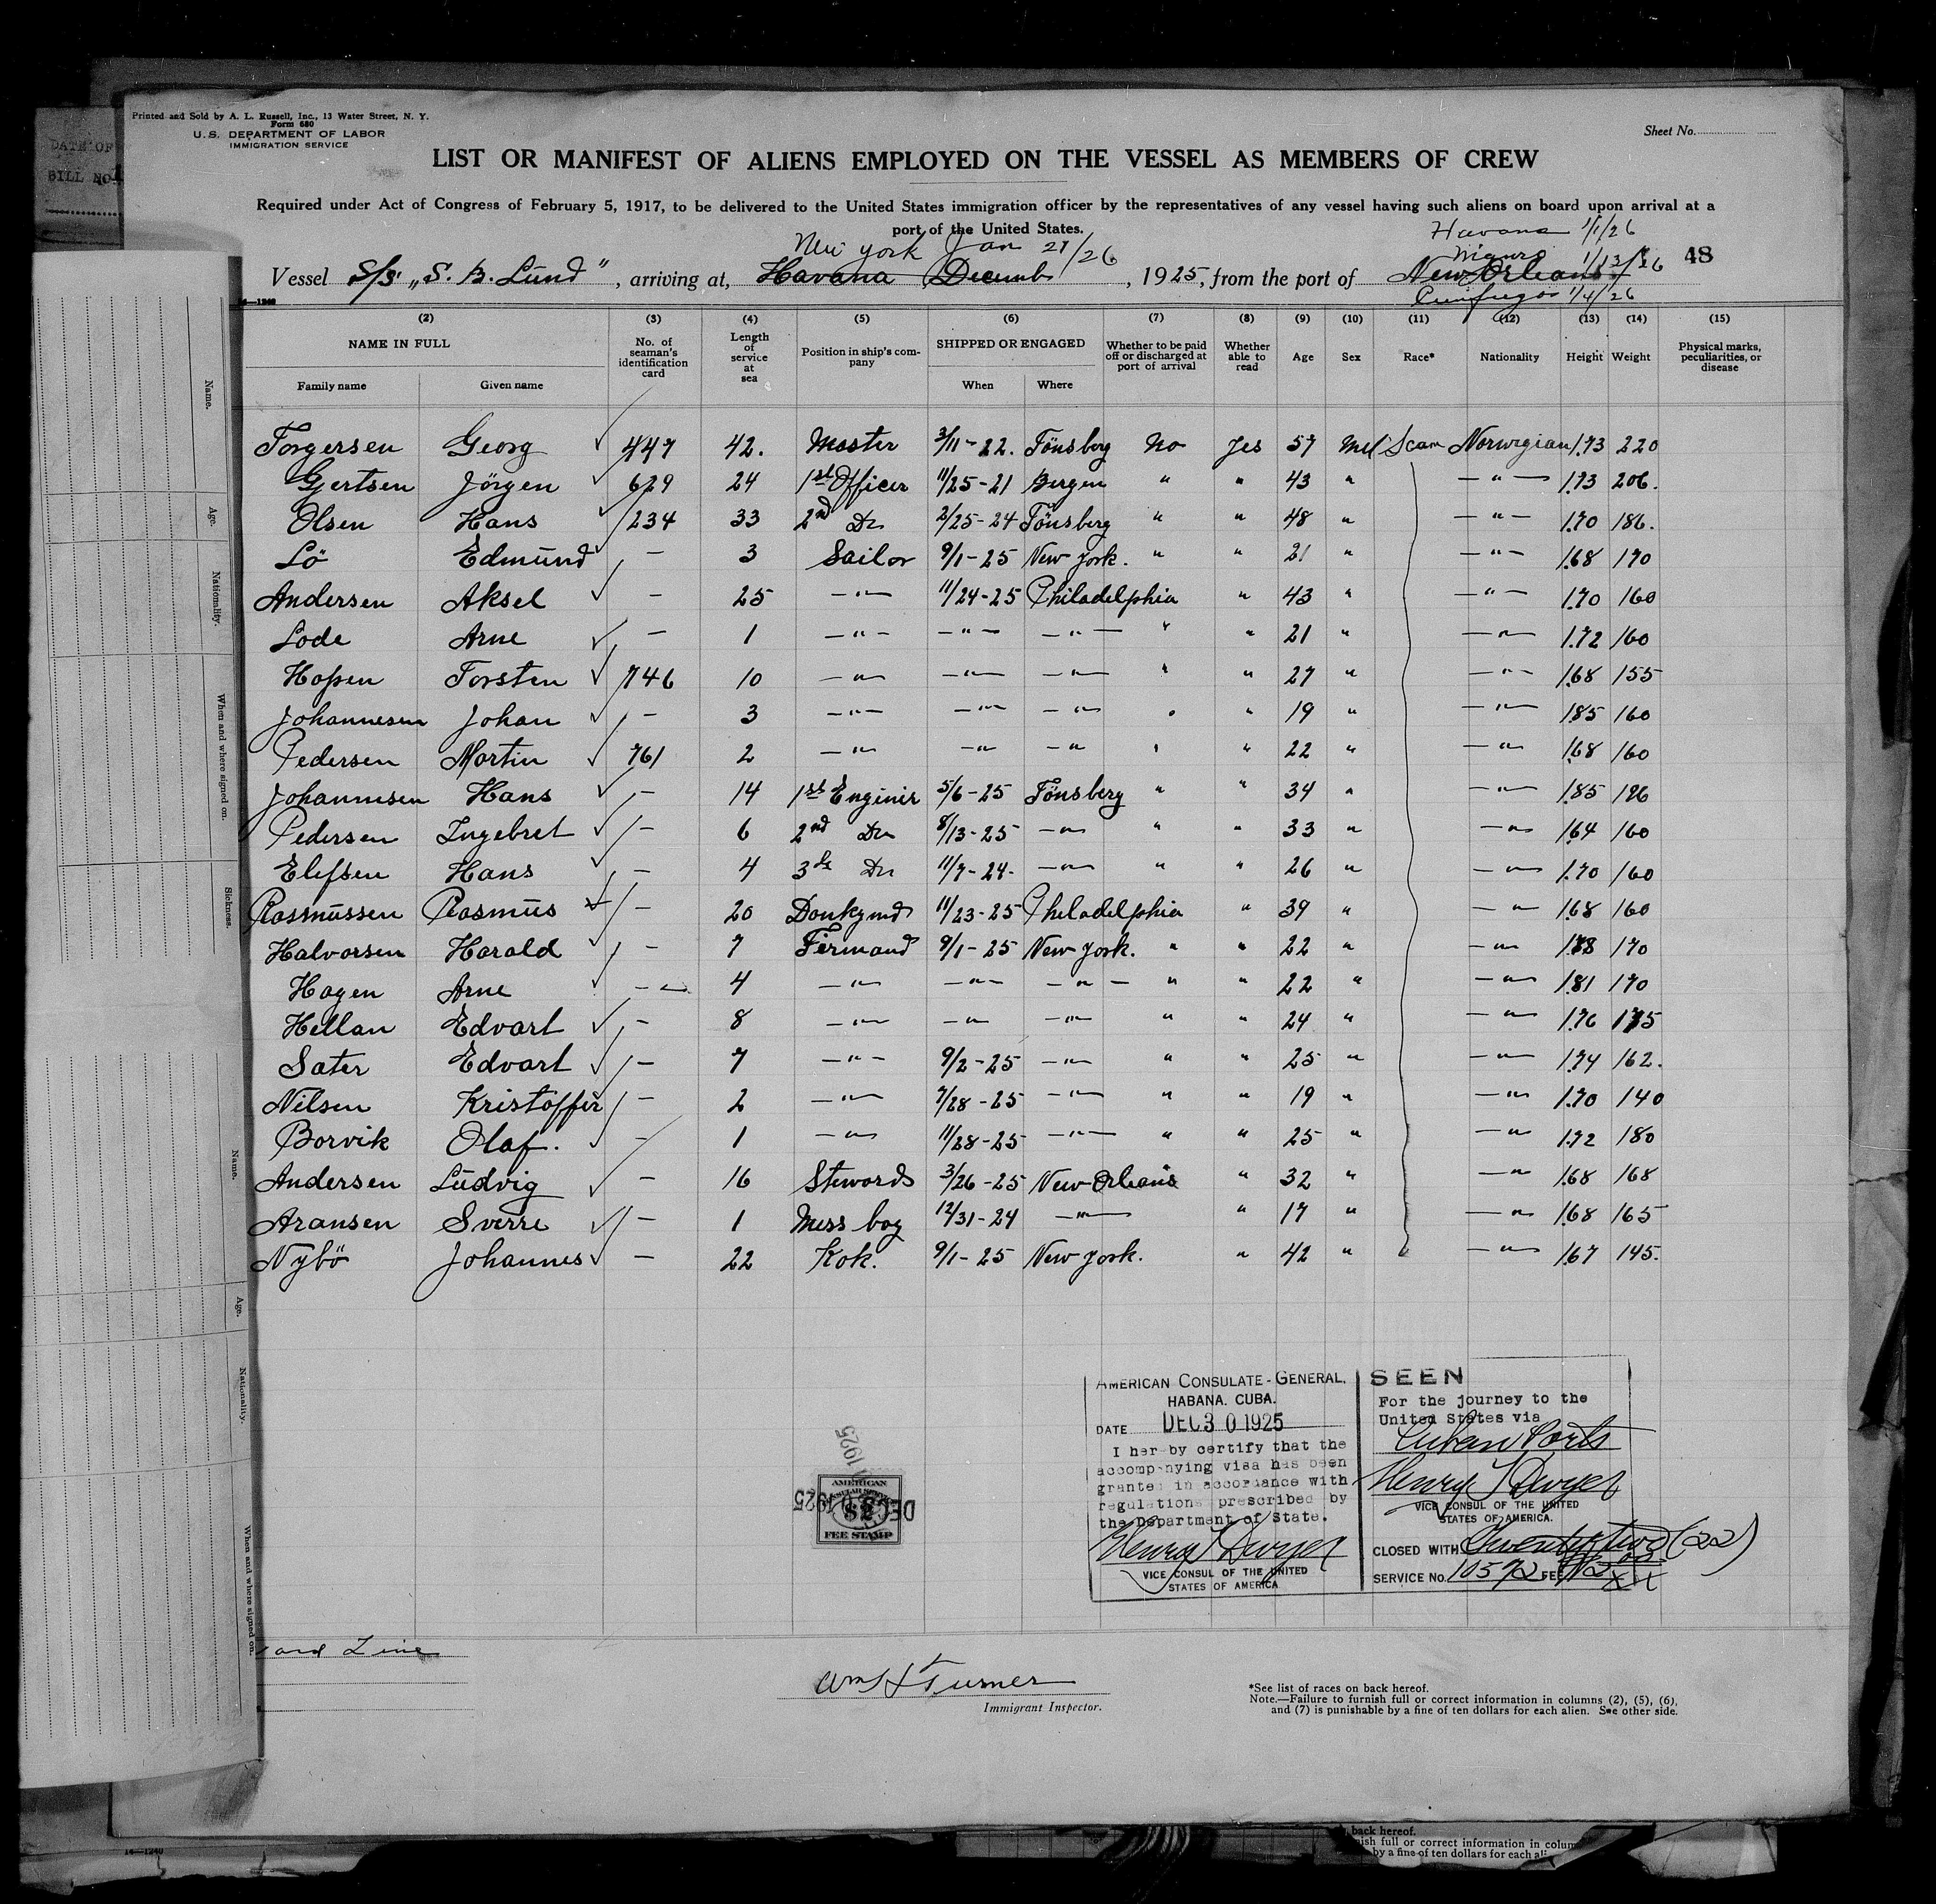 Printed and Sold by A. L. Russell, Inc., 13 Water Street, N. Y.
Form 680
U.S. DEPARTMENT OF LABOR
IMMIGRATION SERVICE
Sheet No.
LIST OR MANIFEST OF ALIENS EMPLOYED ON THE VESSEL AS MEMBERS OF CREW
Required under Act of Congress of February 5, 1917, to be delivered to the United States immigration officer by the representatives of any vessel having such aliens on board upon arrival at a
port of the United States.
New York Jan 21/26
Havana 1/1/26
1/13/26
Vessel S/S „S. B. Lund", arriving at, Havana Decemb, 1925, from the port of New Orleans 48
1/4/26
14—1240
(2) (3) (4) (5) (6) (7) (8) (9) (10) (11) (12) (13) (14) (15)
NAME IN FULL No. of seaman's identification card Length of service at sea Position in ship's company SHIPPED OR ENGAGED Whether to be paid off or discharged at port of arrival Whether able to read Age Sex Race* Nationality Height Weight Physical marks, peculiarities, or disease
Family name Given name When Where
Torgersen Georg 447 42. Master 3/11-22. Tönsberg No Yes 57 Mel Scan Norwegian 1.73 220
Gertsen Jörgen 629 24 1st Officer 11/25-21 Bergen " " 43 " —"— 1.73 206.
Olsen Hans 234 33 2nd Do 2/25-24 Tönsberg " " 48 " —"— 1.70 186.
Lö Edmund — 3 Sailor 9/1-25 New York. " " 21 " —"— 1.68 170
Andersen Aksel — 25 —"— 11/24-25 Philadelphia " 43 " —"— 1.70 160
Lode Arne — 1 —"— —"— —"— " " 21 " —"— 1.72 160
Hopen Torsten 746 10 —"— —"— —"— " " 27 " —"— 1.68 155
Johannesen Johan — 3 —"— —"— —"— " " 19 " —"— 1.85 160
Pedersen Martin 761 2 —"— —"— —"— " " 22 " —"— 1.68 160
Johannesen Hans — 14 1st Enginir 5/6-25 Tönsberg " " 34 " —"— 1.85 196
Pedersen Ingebret — 6 2nd Do 8/13-25 —"— " " 33 " —"— 1.64 160
Elefsen Hans — 4 3de Do 11/7-24. —"— " " 26 " —"— 1.70 160
Rasmussen Rasmus — 20 Donkymd 11/23-25 Philadelphia " 39 " —"— 1.68 160
Halvorsen Harald — 7 Firmand 9/1-25 New York. " " 22 " —"— 1.78 170
Hagen Arne — 4 —"— —"— —"— " " 22 " —"— 1.81 170
Hellan Edvart — 8 —"— —"— —"— " " 24 " —"— 1.76 175
Sater Edvart — 7 —"— 9/2-25 —"— " " 25 " —"— 1.74 162.
Nilsen Kristoffer — 2 —"— 7/28-25 —"— " " 19 " —"— 1.70 140
Borvik Olaf. — 1 —"— 11/28-25 —"— " " 25 " —"— 1.72 180
Andersen Ludvig — 16 Stewards 3/26-25 New Orleans " 32 " —"— 1.68 168
Aransen Sverre — 1 Mess boy 12/31-24 —"— " 17 " —"— 1.68 165
Nybö Johannes — 22 Kok. 9/1-25 New York. " 42 " —"— 1.67 145.
AMERICAN CONSULATE-GENERAL,
HABANA. CUBA.
DATE DEC 30 1925
I her by certify that the
accompanying visa has been
granted in accordance with
regulations prescribed by
the Department of State.
Henry T Dwyer
VICE CONSUL OF THE UNITED
STATES OF AMERICA
SEEN
For the journey to the
United States via
Cuban Ports
Henry T Dwyer
VICE CONSUL OF THE UNITED
STATES OF AMERICA.
CLOSED WITH Twenty two (22)
SERVICE No. 10572 FEE
AMERICAN
CONSULAR SERVICE
$2
FEE STAMP
DEC 30 1925
ard Line
Wm H Turner
Immigrant Inspector.
*See list of races on back hereof.
Note.—Failure to furnish full or correct information in columns (2), (5), (6),
and (7) is punishable by a fine of ten dollars for each alien. See other side.
DATE OF
BILL NO.
Name.
Age.
Nationality.
When and where signed on.
Sickness.
Name.
Age.
Nationality.
When and where signed on.
14—1240
back hereof.
nish full or correct information in colum
by a fine of ten dollars for each ali